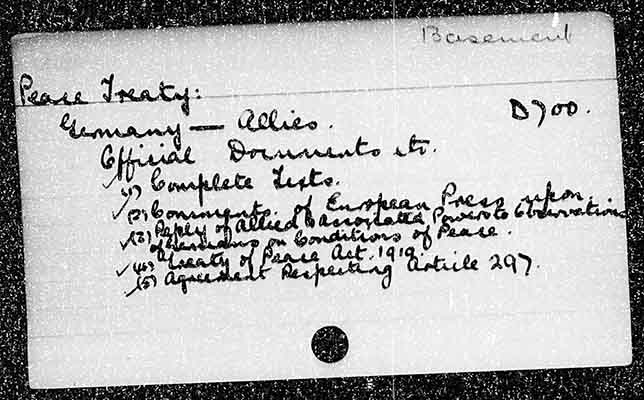 Basement
Peace Treaty:
Germany — Allies.
D700.
Official Documents etc.
✓(1) Complete Texts.
✓(2) Comments of European Press upon.
✓(3) Reply of Allied & Associated Powers to Observations
of Germans on Conditions of Peace.
✓(4) Treaty of Peace Act. 1919.
✓(5) Agreement Respecting Article 297.